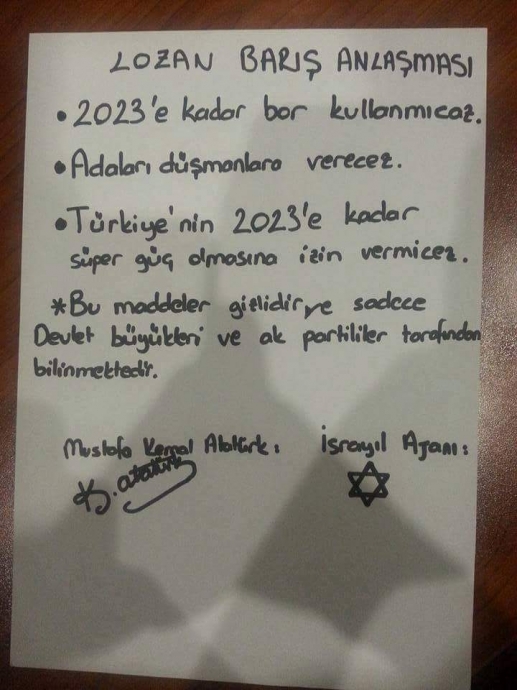 LOZAN BARIŞ ANLAŞMASI
• 2023'e kadar bor kullanmıcaz.
• Adaları düşmanlara verecez.
• Türkiye'nin 2023'e kadar
süper güç olmasına izin vermicez.
*Bu maddeler gizlidir ve sadece
Devlet büyükleri ve ak partililer tarafından
bilinmektedir.
Mustafa Kemal Atatürk: İsrayil Ajanı:
K. atatürk